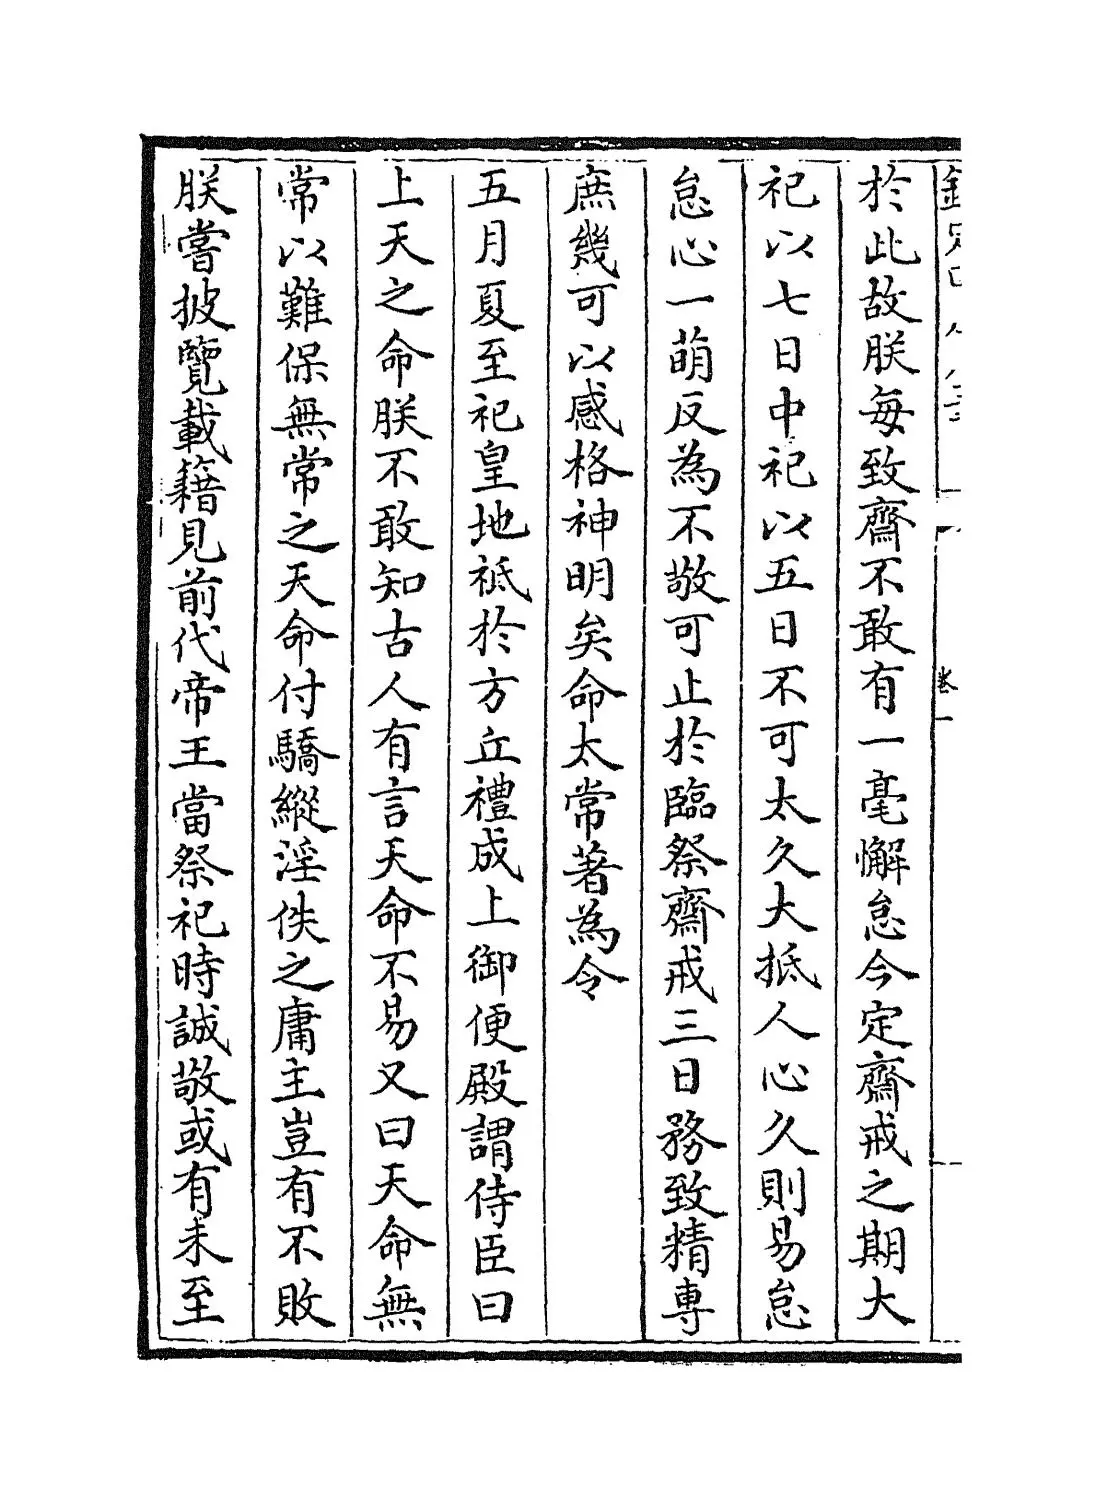 於此故朕每致齋不敢有一毫懈怠今定齋戒之期大
祀以七日中祀以五日不可太久大抵人心久則易怠
怠心一萌反為不敬可止於臨祭齋戒三日務致精專
庶幾可以感格神明矣命太常著為令
五月夏至祀皇地祗於方丘禮成上御便殿謂侍臣曰
上天之命朕不敢知古人有言天命不易又曰天命無
常以難保無常之天命付驕縱淫佚之庸主豈有不敗
朕嘗披覽載籍見前代帝王當祭祀時誠敬或有未至
卷一